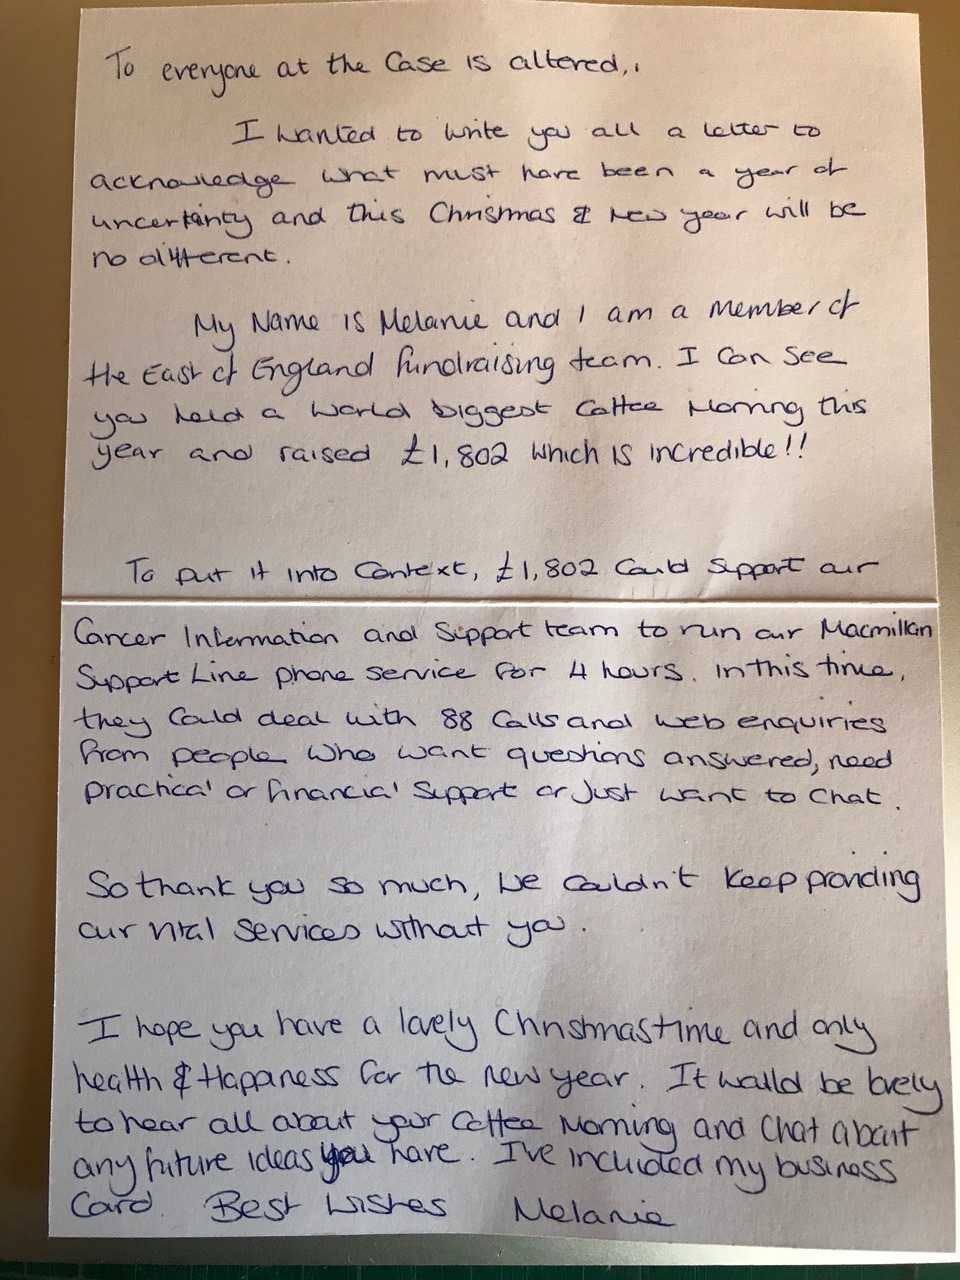 To everyone at the Case is altered,,
I wanted to write you all a letter to
acknowledge what must have been a year of
uncertainty and this Christmas & New year will be
no different.
My Name is Melanie and I am a member of
the East of England fundraising team. I can see
you held a World biggest Coffee Morning this
year and raised £1,802 which is incredible!!
To put it into Context, £1,802 Could Support our
Cancer Information and Support team to run our Macmillan
Support Line phone service for 4 hours. In this time,
they Could deal with 88 Calls and web enquiries
from people who want questions answered, need
practical or financial Support or Just want to Chat.
So thank you so much, we couldn't keep providing
our vital services without you.
I hope you have a lovely Christmas time and only
health & Happiness for the new year. It would be lovely
to hear all about your Coffee Morning and Chat about
any future ideas you have. I've included my business
Card. Best Wishes Melanie